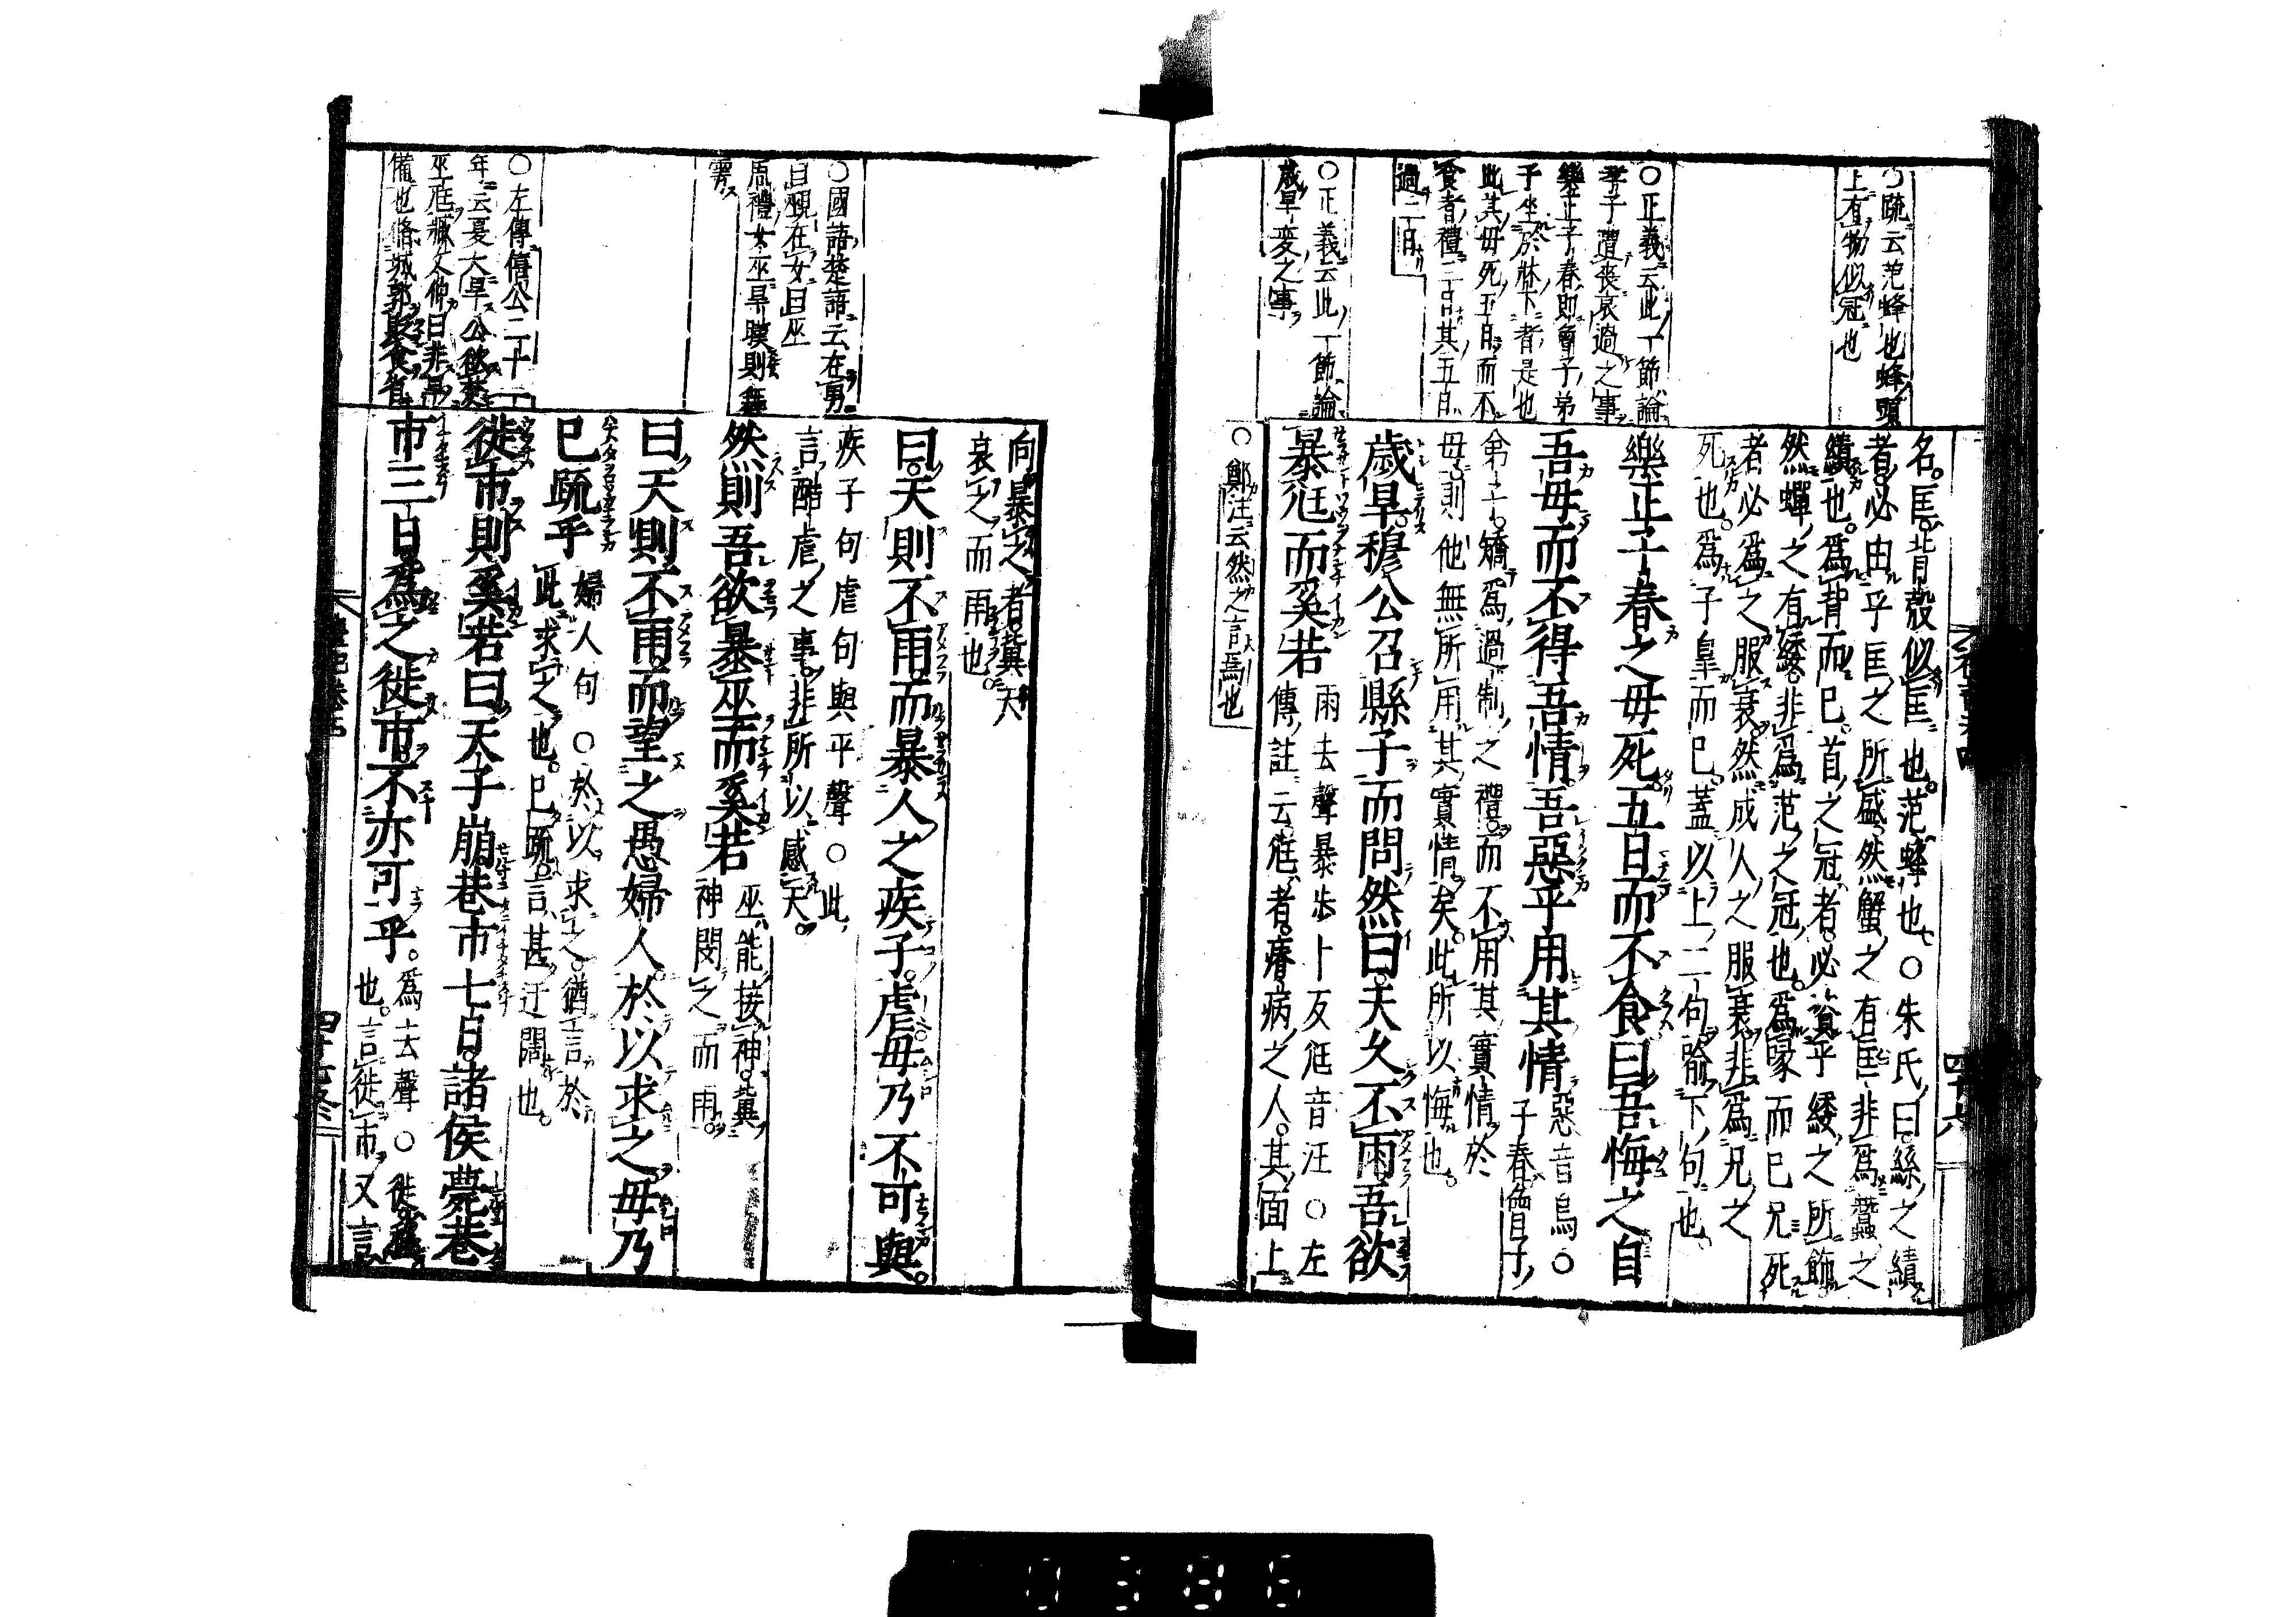 ○疏云范蜂也蜂頭
上有物似冠也
○正義云此一節論
孝子遭喪哀過之事
樂正子春即曾子弟
子坐於牀下者是也
此其母死五日而不
食者禮三日其五日
過二日
○正義云此一節論
歲旱変之事
名匡背殻似匡也范蜂也○朱氏曰絲之績
者必由乎匡之所盛然蟹之有匡非爲蠶之
績也爲背而已首之冠者必資乎緌之所飾
然蟬之有緌非爲范之冠也爲喙而已兄死
者必爲之服衰然成人之服衰非爲兄之
死也爲子皐而已蓋以上二句喩下句也
樂正子春之母死五日而不食曰吾悔之自
吾母而不得吾情吾惡乎用其情
惡音烏○
子春曾子
弟子矯爲過制之禮而不用其實情於
母則他無所用其實情矣此所以悔也
歲旱穆公召縣子而問然曰天久不雨吾欲
暴尫而奚若
雨去聲暴步卜反尫音汪○左
傳註云尫者瘠病之人其面上
○鄭注云然之言焉也
向暴之者冀天
哀之而雨也
○國語楚語云在男
曰覡在女曰巫
周禮女巫旱暵則舞
雩
○左傳僖公二十一
年云夏大旱公欲焚
巫尫臧文仲曰非旱
備也脩城郭貶食省
曰天則不雨而暴人之疾子虐毋乃不可與
疾子句虐句與平聲○此
言酷虐之事非所以感天
然則吾欲暴巫而奚若
巫能接神冀
神閔之而雨
曰天則不雨而望之愚婦人於以求之毋乃
已疏乎
婦人句○於以求之猶言於
此求之也已疏言甚迂闊也
徙市則奚若曰天子崩巷市七日諸侯薨巷
市三日爲之徙市不亦可乎
爲去聲○徙
也言徙市又言